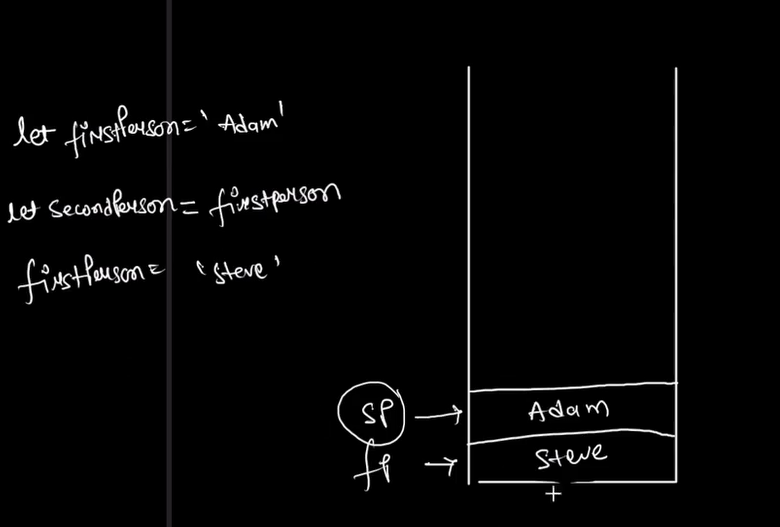 let firstPerson = 'Adam'
let SecondPerson = firstperson
firstPerson = 'Steve'
SP → Adam
fp → Steve
+